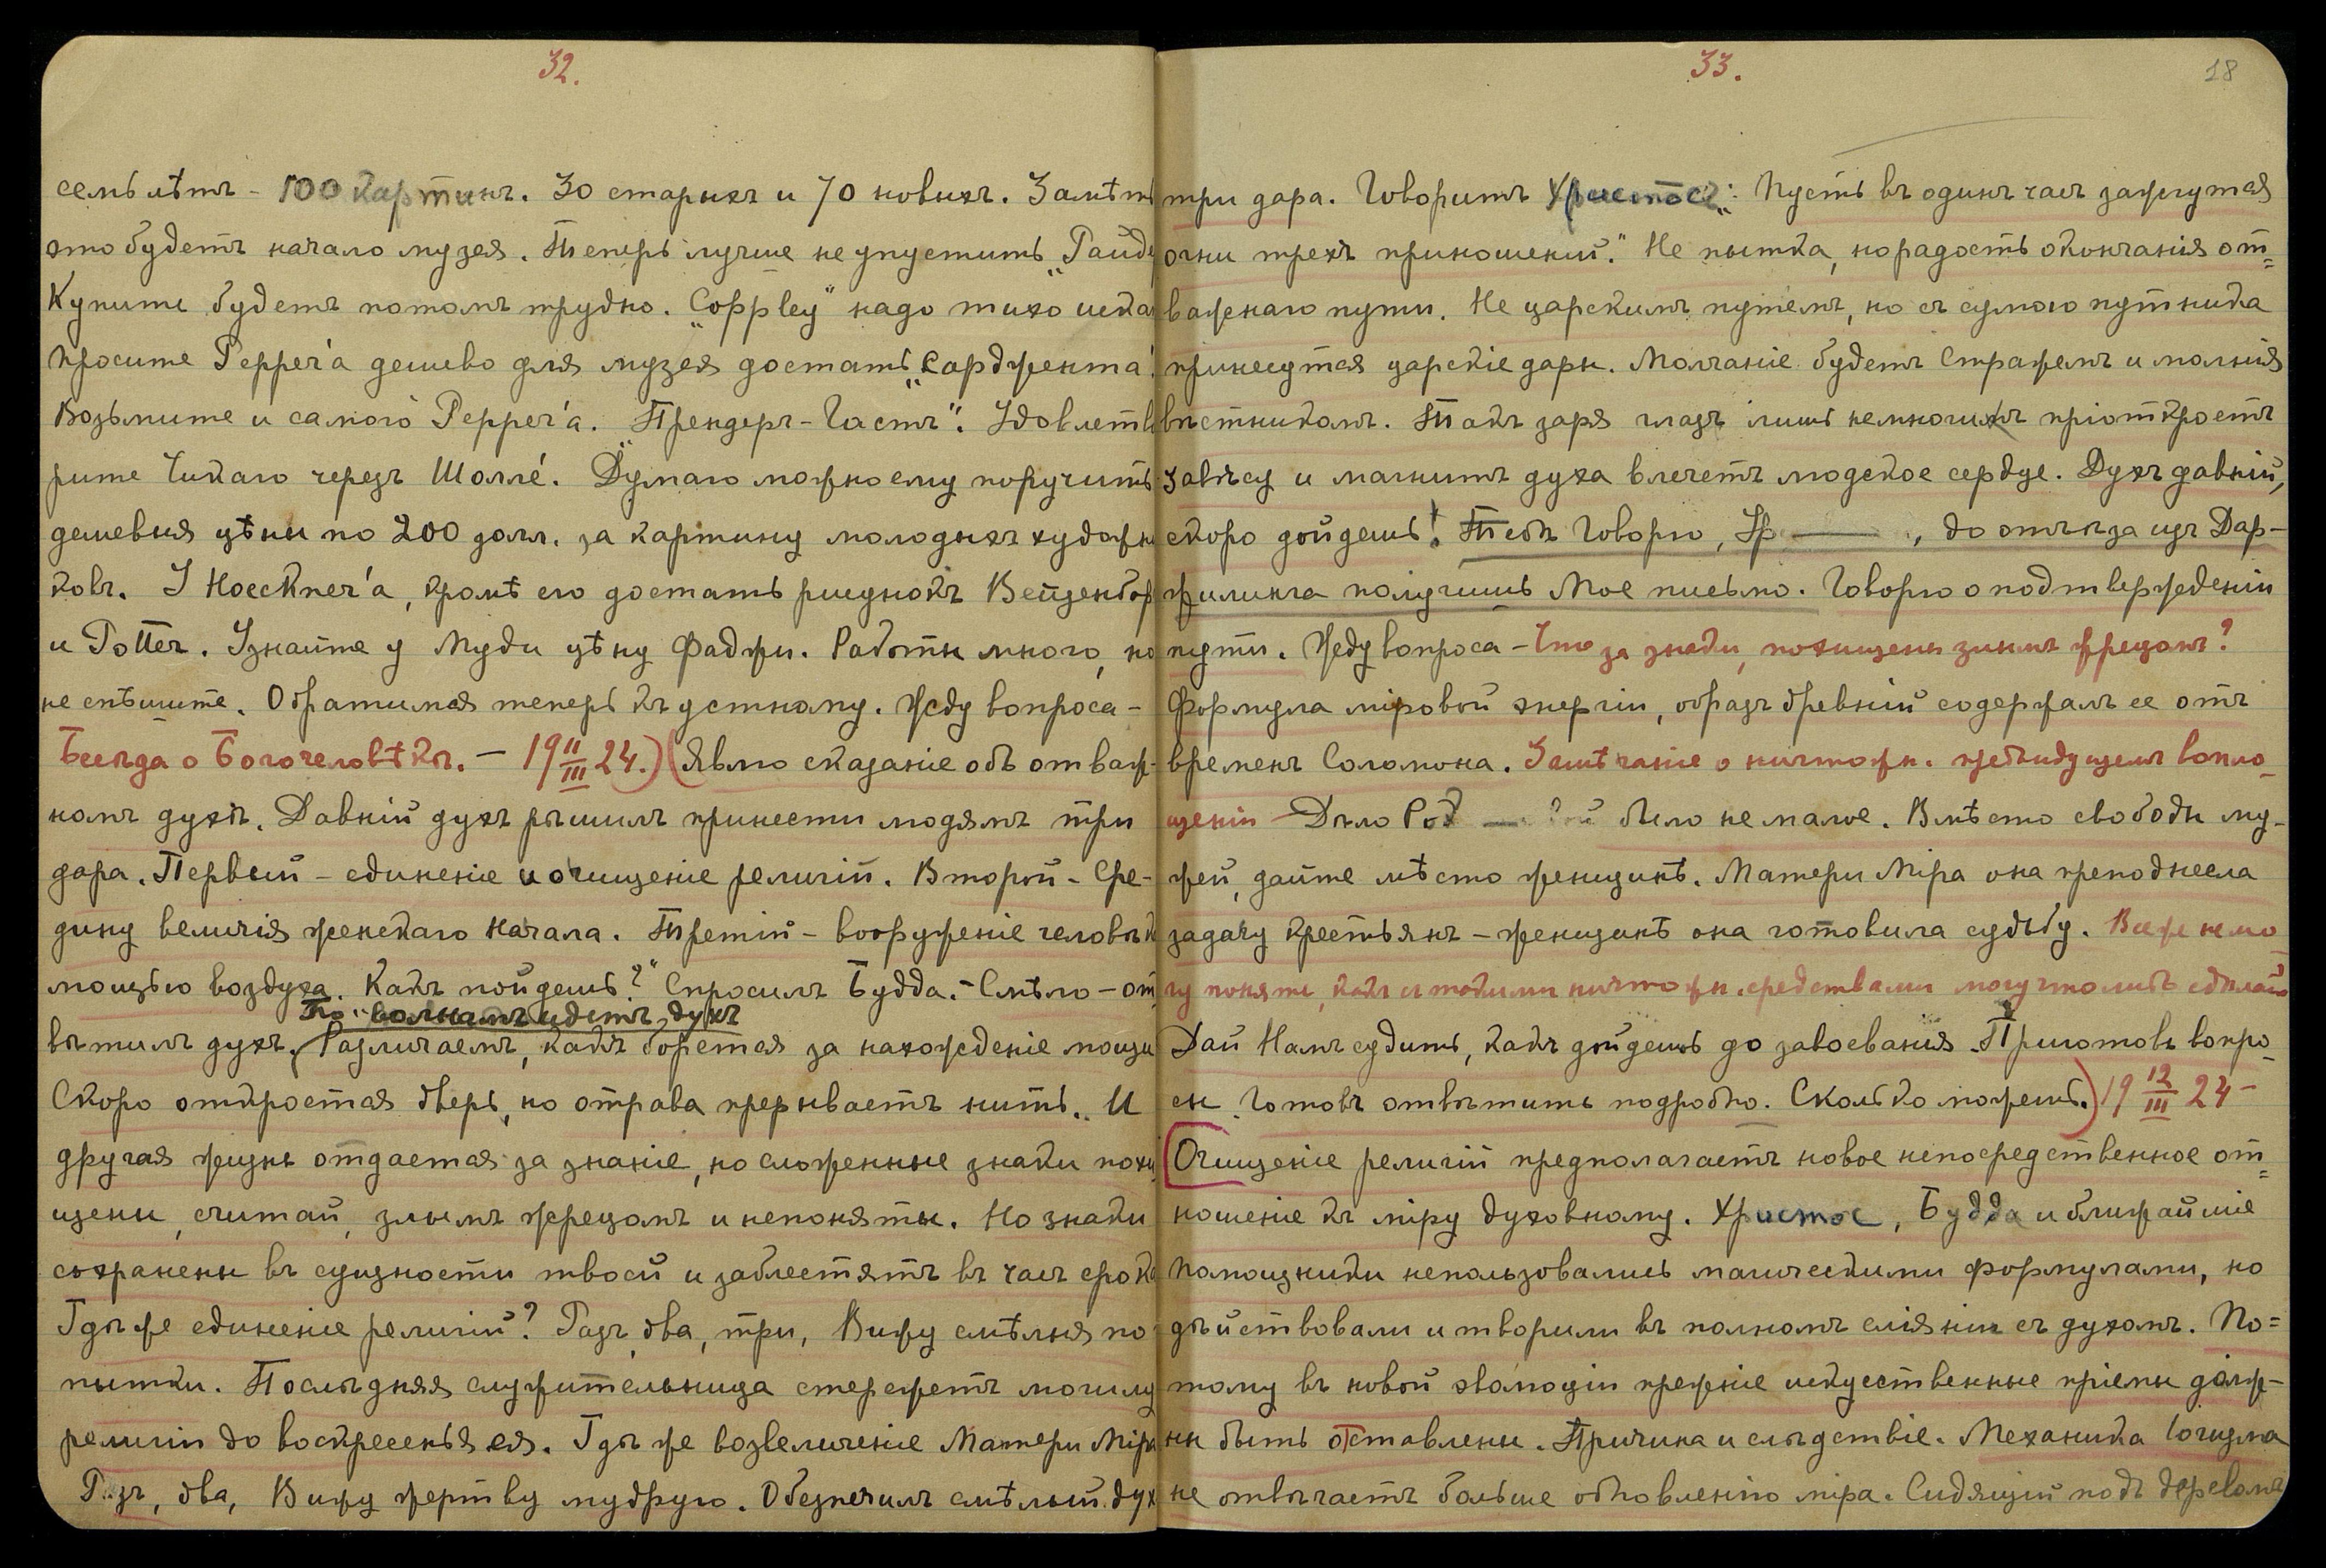 32.
семь лѣтъ - 100 картинъ. 30 старыхъ и 70 новыхъ. Замѣть
это будетъ начало музея. Теперь лучше не упустить „Райд
Купить будетъ потомъ трудно. „Coppley" надо тихо иска
просите Реррег'а дешево для музея достать „Сарджента".
Возьмите и самого Реррег'а. „Прендерг-Гастъ". Удовлетв
рите Чикаго черезъ Шолле́. Думаю можно ему поручить
дешевыя цѣны по 200 долл. за картину молодыхъ художн
ковъ. У Ноесkner'а, кромѣ его достать рисунокъ Вейденбор
и Potter. Узнайте у Муди цѣну Фаджи. Работы много, но
не спѣшите. Обратимся теперь къ устному. Жду вопроса -
Бесѣда о Богочеловѣкѣ. - 19 11/III 24.) (Явлю сказаніе объ отваж-
номъ духѣ. Давній духъ рѣшилъ принести людямъ три
дара. Первый - единеніе и очищеніе религій. Второй - Сре-
дину величія женскаго начала. Третій - вооруженіе человѣк
мощью воздуха. Какъ пойдешь?" Спросилъ Будда. - Смѣло - от
По волнамъ идетъ духъ
вѣтилъ духъ. Различаемъ, какъ борется за нахожденіе мощи
Скоро откроется дверь, но отрава прерываетъ нить. И
другая жизнь отдается за знаніе, но сложенные знаки похи
щены, считай, злымъ жрецомъ и непоняты. Но знаки
сохранены въ сущности твоей и заблестятъ въ часъ срока
Гдѣ же единеніе религій? Разъ, два, три, Вижу смѣлыя по
пытки. Послѣдняя служительница стережетъ могилу
религіи до воскресенья ея. Гдѣ же возвеличеніе Матери Міра
Разъ, два, Вижу жертву мудрую. Обезпечилъ смѣлый дух
33.
18
три дара. Говоритъ Христосъ: „Пусть въ одинъ часъ зажгутся
огни трехъ приношеній." Не пытка, но радость окончанія от=
важнаго пути. Не царскимъ путемъ, но съ сумою путника
принесутся царскіе дары. Молчаніе будетъ Стражемъ и молнія
вѣстникомъ. Такъ заря глазъ лишь немногихъ пріоткроетъ
завѣсу и магнитъ духа влечетъ людское сердце. Духъ давній,
скоро дойдешь! Тебѣ Говорю, Ур —, до отъѣзда изъ Дар-
жилинга получишь Мое письмо. Говорю о подтвержденіи
пути. Жду вопроса - Что за знаки, похищены злымъ жрецомъ?
Формула міровой энергіи, образъ древній содержалъ ее отъ
временъ Соломона. Замѣчаніе о ничтожн. предыдущемъ вопло-
щеніи - Дѣло Род — было не малое. Вмѣсто свободы му-
жей, дайте мѣсто женщинѣ. Матери Міра она преподнесла
задачу крестьянъ - женщинѣ она готовила судьбу. Все же не мо-
гу понять, какъ съ такими ничтожн. средствами могу что либо сдѣлать
Дай Намъ судить, какъ дойдешь до завоеванія. Приготовь вопро-
сы. Готовъ отвѣтить подробно. Сколько можешь.) 19 12/III 24 -
Очищеніе религій предполагаетъ новое непосредственное от=
ношеніе къ міру духовному. Христос, Будда и ближайшіе
помощники непользовались магическими формулами, но
дѣйствовали и творили въ полномъ сліяніи съ духомъ. По=
тому въ новой эволюціи прежніе искусственные пріемы долж-
ны быть оставлены. Причина и слѣдствіе. Механика Іогизма
не отвѣчаетъ больше обновленію міра. Сидящій подъ деревомъ